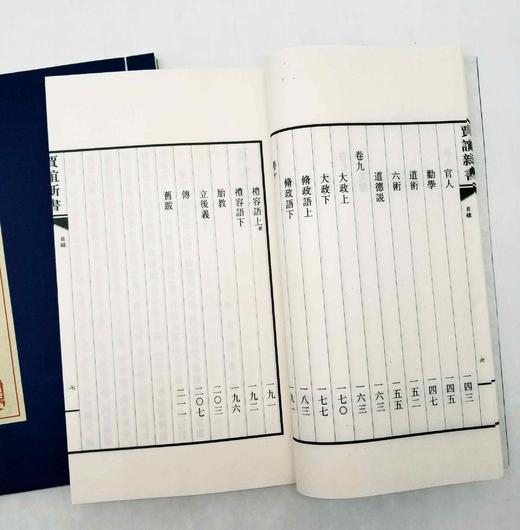 賈誼新書
目錄
六
官人 一四三
勸學 一四五
道術 一四七
六術 一五二
道德説 一五五
卷九 一六三
大政上 一六三
大政下 一七〇
脩政語上 一七七
脩政語下 一八三
一九一
卷十 一九一
禮容語上 一九二
禮容語下 一九六
胎教 二〇三
立後義 二〇七
傳 二一一
舊跋
賈誼新書
目錄
七